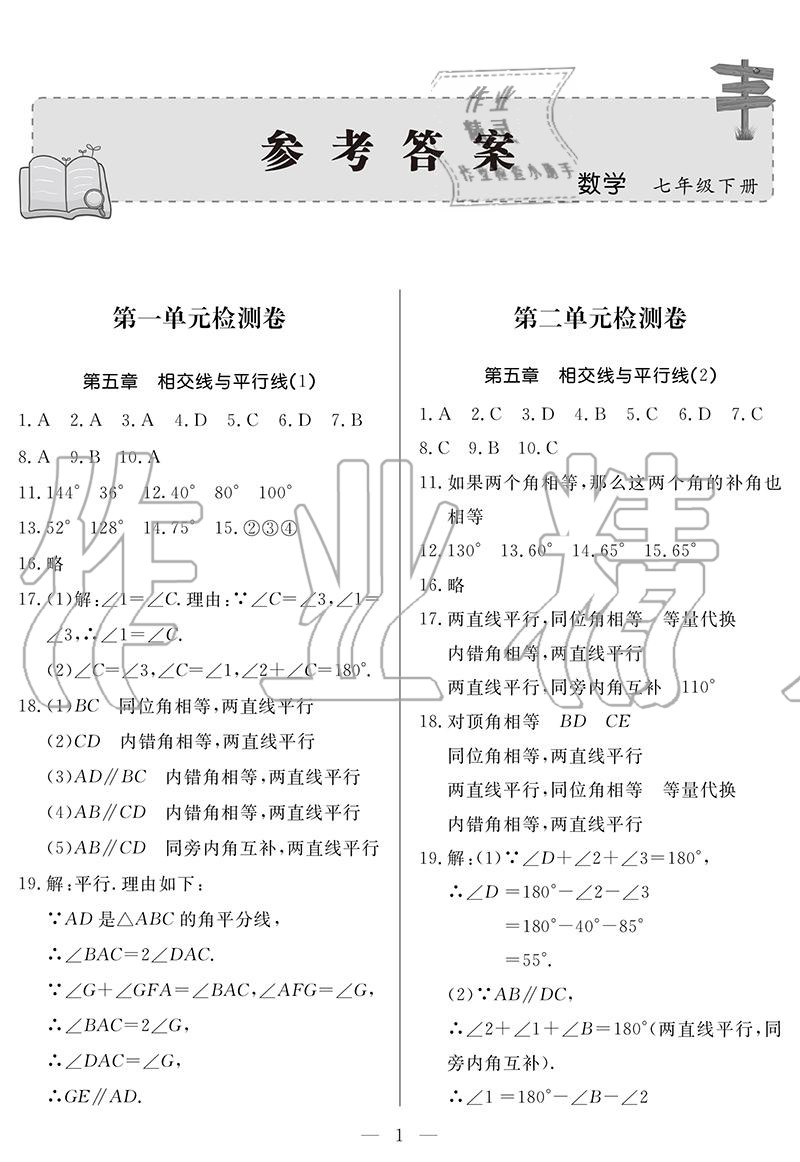 参考答案
作业
精灵
作业检查小助手
数学 七年级下册
第一单元检测卷
第五章 相交线与平行线(1)
1.A 2.A 3.A 4.D 5.C 6.D 7.B
8.A 9.B 10.A
11.144° 36° 12.40° 80° 100°
13.52° 128° 14.75° 15.②③④
16.略
17.(1)解:∠1=∠C.理由:∵∠C=∠3,∠1=
∠3,∴∠1=∠C.
(2)∠C=∠3,∠C=∠1,∠2+∠C=180°.
18.(1)BC 同位角相等,两直线平行
(2)CD 内错角相等,两直线平行
(3)AD∥BC 内错角相等,两直线平行
(4)AB∥CD 内错角相等,两直线平行
(5)AB∥CD 同旁内角互补,两直线平行
19.解:平行.理由如下:
∵AD是△ABC的角平分线,
∴∠BAC=2∠DAC.
∵∠G+∠GFA=∠BAC,∠AFG=∠G,
∴∠BAC=2∠G,
∴∠DAC=∠G,
∴GE∥AD.
第二单元检测卷
第五章 相交线与平行线(2)
1.A 2.C 3.D 4.B 5.C 6.D 7.C
8.C 9.B 10.C
11.如果两个角相等,那么这两个角的补角也
相等
12.130° 13.60° 14.65° 15.65°
16.略
17.两直线平行,同位角相等 等量代换
内错角相等,两直线平行
两直线平行,同旁内角互补 110°
18.对顶角相等 BD CE
同位角相等,两直线平行
两直线平行,同位角相等 等量代换
内错角相等,两直线平行
19.解:(1)∵∠D+∠2+∠3=180°,
∴∠D=180°-∠2-∠3
=180°-40°-85°
=55°.
(2)∵AB∥DC,
∴∠2+∠1+∠B=180°(两直线平行,同
旁内角互补).
∴∠1=180°-∠B-∠2
— 1 —
作业精